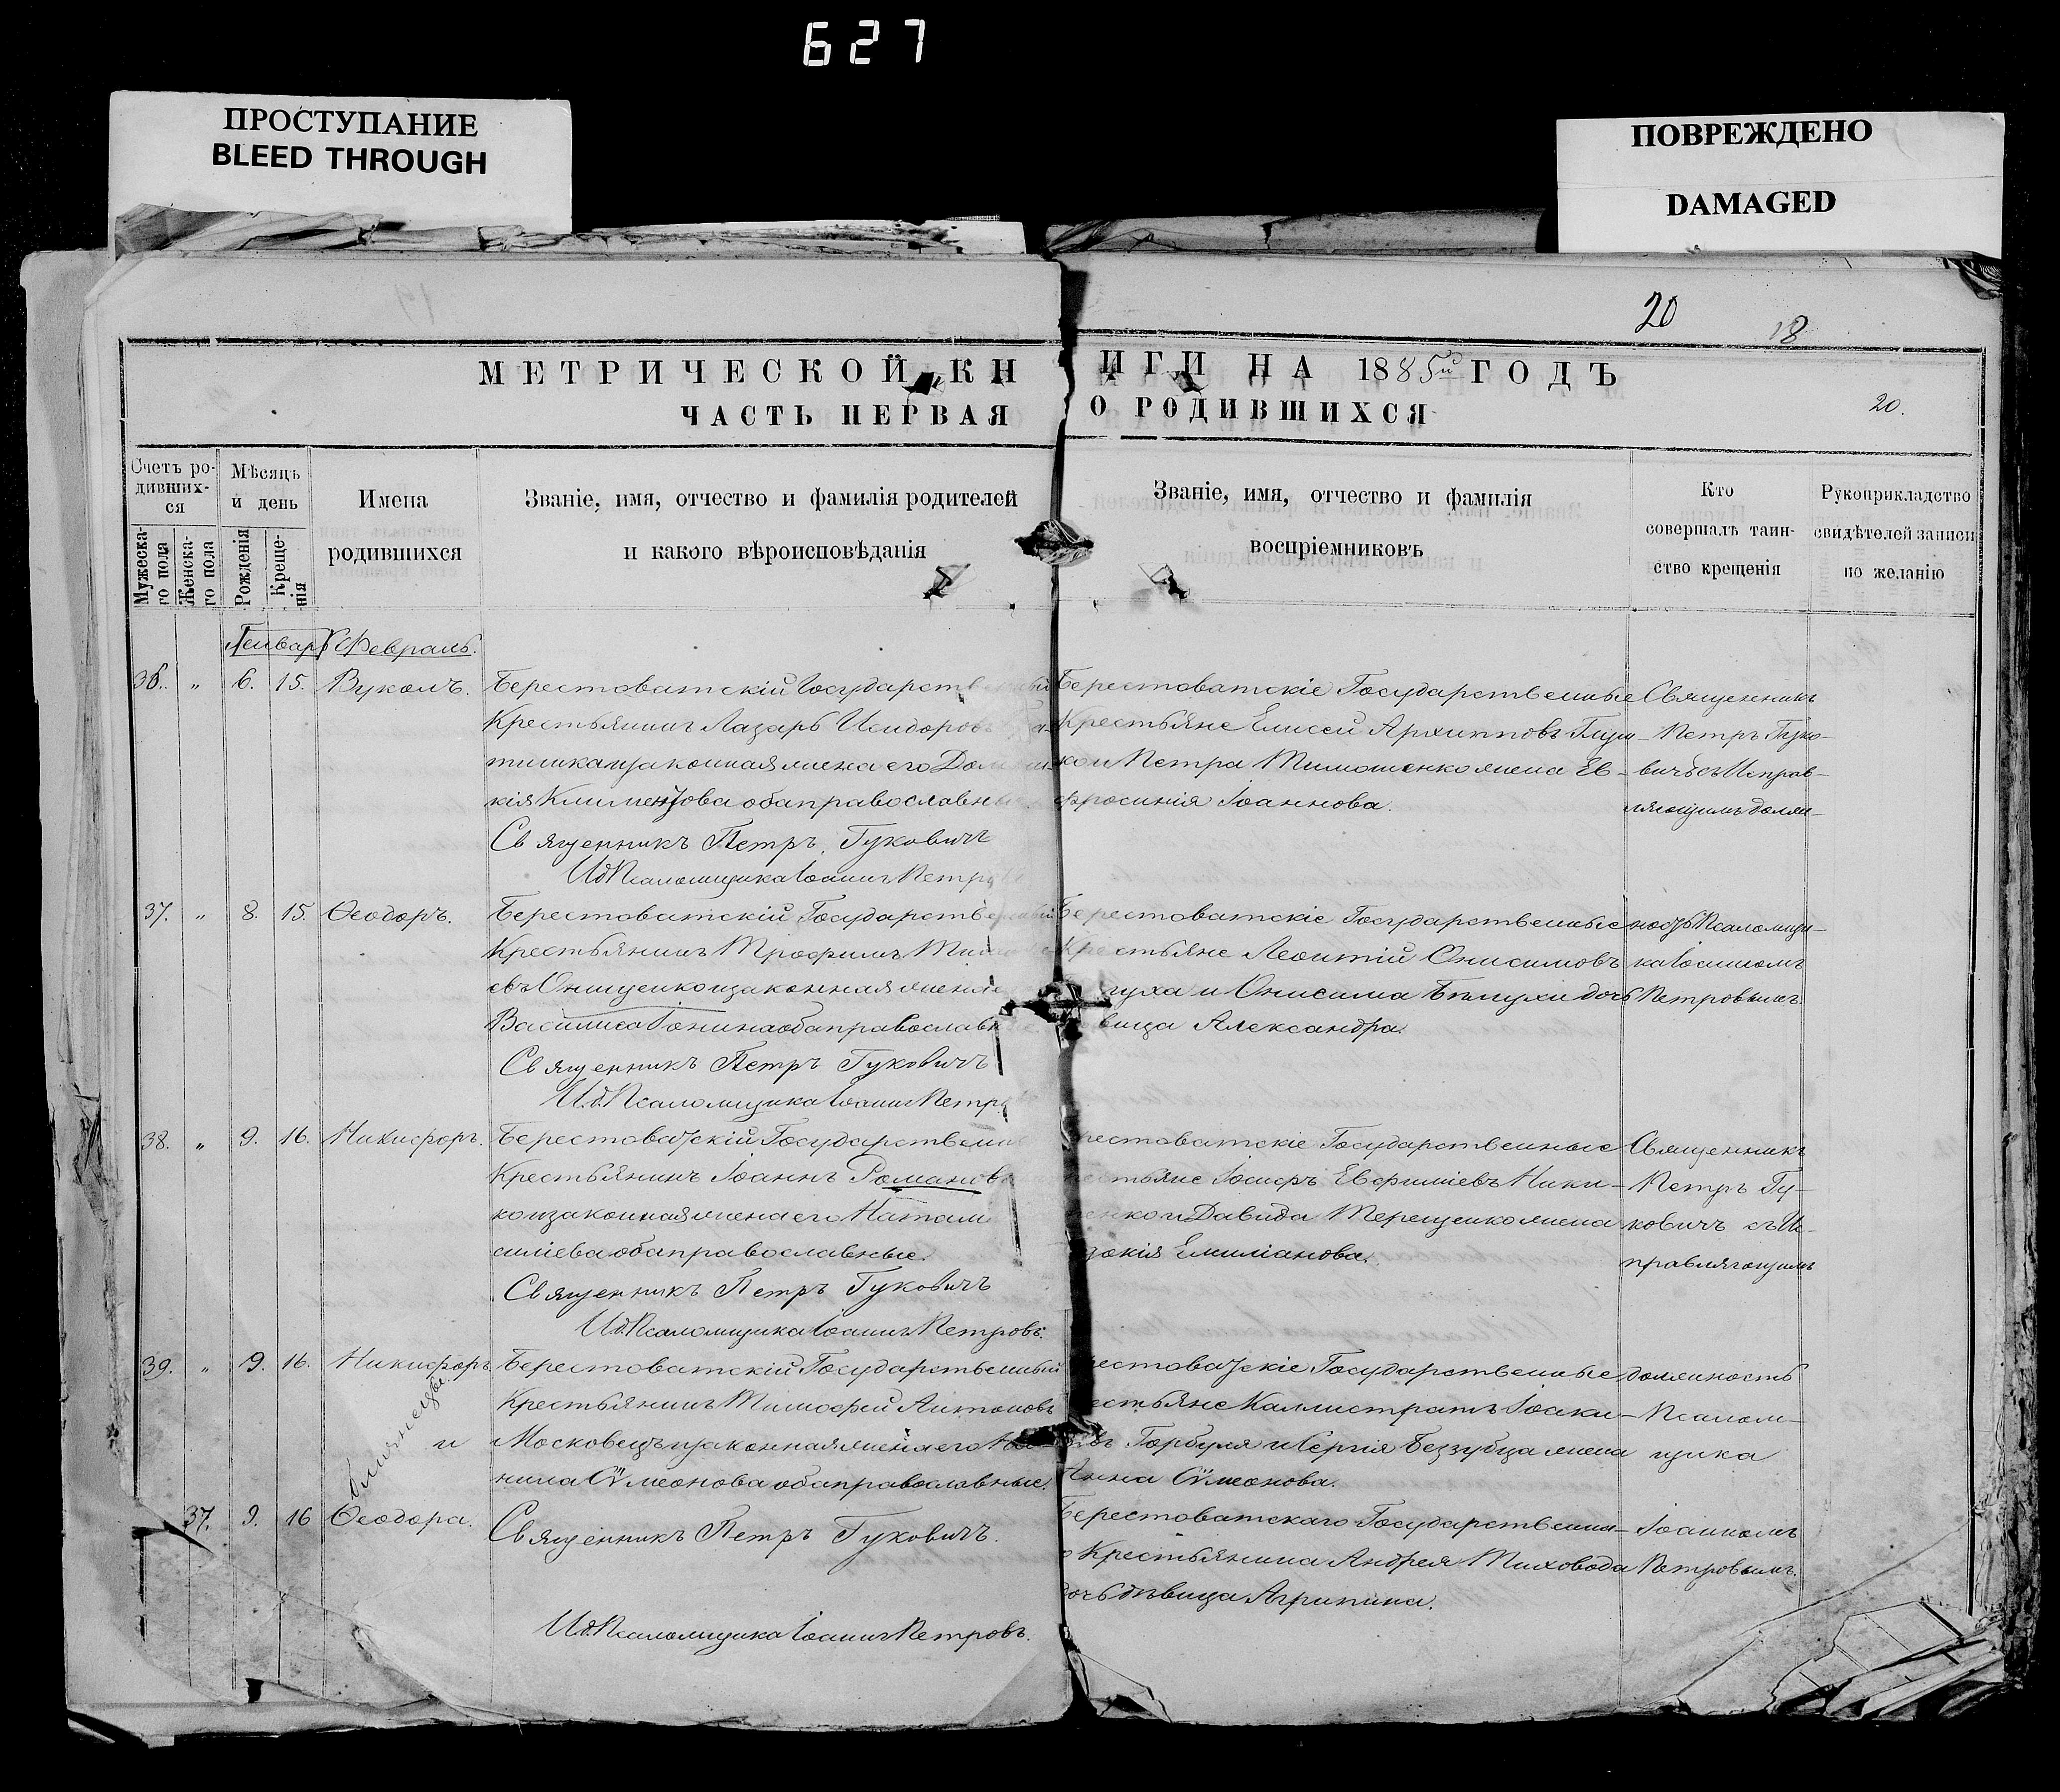 627
ПРОСТУПАНИЕ
BLEED THROUGH
ПОВРЕЖДЕНО
DAMAGED
20
18
МЕТРИЧЕСКОЙ КНИГИ НА 1885й ГОДЪ
ЧАСТЬ ПЕРВАЯ О РОДИВШИХСЯ
20.
Счетъ ро-
дивших-
ся
Мужеска-
го пола
Женска-
го пола
Мѣсяцъ
и день
Рожденія
Креще-
нія
Имена
родившихся
Званіе, имя, отчество и фамилія родителей
и какого вѣроисповѣданія
Званіе, имя, отчество и фамилія
воспріемниковъ
Кто
совершалъ таин-
ство крещенія
Рукоприкладство
свидѣтелей записи
по желанію
Февраль.
36. " 6. 15. Вуколъ.
Берестоватскій Государств
Крестьянинъ Лазарь Исидоровъ
законная жена его
Климентова оба православны
Священникъ Петръ Гуковичъ
И.д. Псаломщика Іоаннъ Петр
Берестоватскіе Государственные
Крестьяне Елисей Архипповъ
и Петра Тимошенко жена Ев-
фросинія Іоаннова.
Священникъ
Петръ Гуко-
вичъ съ Исправ-
ляющимъ долж-
37. " 8. 15. Ѳеодоръ.
Берестоватскій Государственный
Крестьянинъ Трофимъ
евъ Онищенко и законная жена
Василиса оба православн
Священникъ Петръ Гуковичъ
И.д. Псаломщика Іоаннъ Петр
Берестоватскіе Государственные
Крестьяне Леонтій Онисимовъ
и Онисима Бѣлухи дочь
вица Александра.
ность Псаломщи-
ка Іоанномъ
Петровымъ.
38. " 9. 16. Никифоръ.
Берестоватскій Государствен
Крестьянинъ Іоаннъ Романовъ
ко и законная жена его Натал
силіева оба православные.
Священникъ Петръ Гуковичъ
И.д. Псаломщика Іоаннъ Петровъ.
рестоватскіе Государственные
рестьяне Іосифъ Евфиміевъ Ники-
енко и Давида Терещенко жена
докія Емиліанова.
Священникъ
Петръ Гу-
ковичъ съ Ис-
правляющимъ
39. " 9. 16. Никифоръ
близнецы.
и
37. 9. 16 Ѳеодора.
Берестоватскій Государственный
Крестьянинъ Тимофей Антоновъ
Московецъ и законная жена его
нила Сѵмеонова оба православные.
Священникъ Петръ Гуковичъ.
И.д. Псаломщика Іоаннъ Петровъ.
рестоватскіе Государственные
рестьяне Каллистратъ Іоаки-
мовъ Горбуля и Сергія Беззубца жена
Анна Сѵмеонова.
Берестоватскаго Государственна-
го Крестьянина Андрея Тиховода
дочь дѣвица Агрипина.
должность
Псалом-
щика
Іоанномъ
Петровымъ.